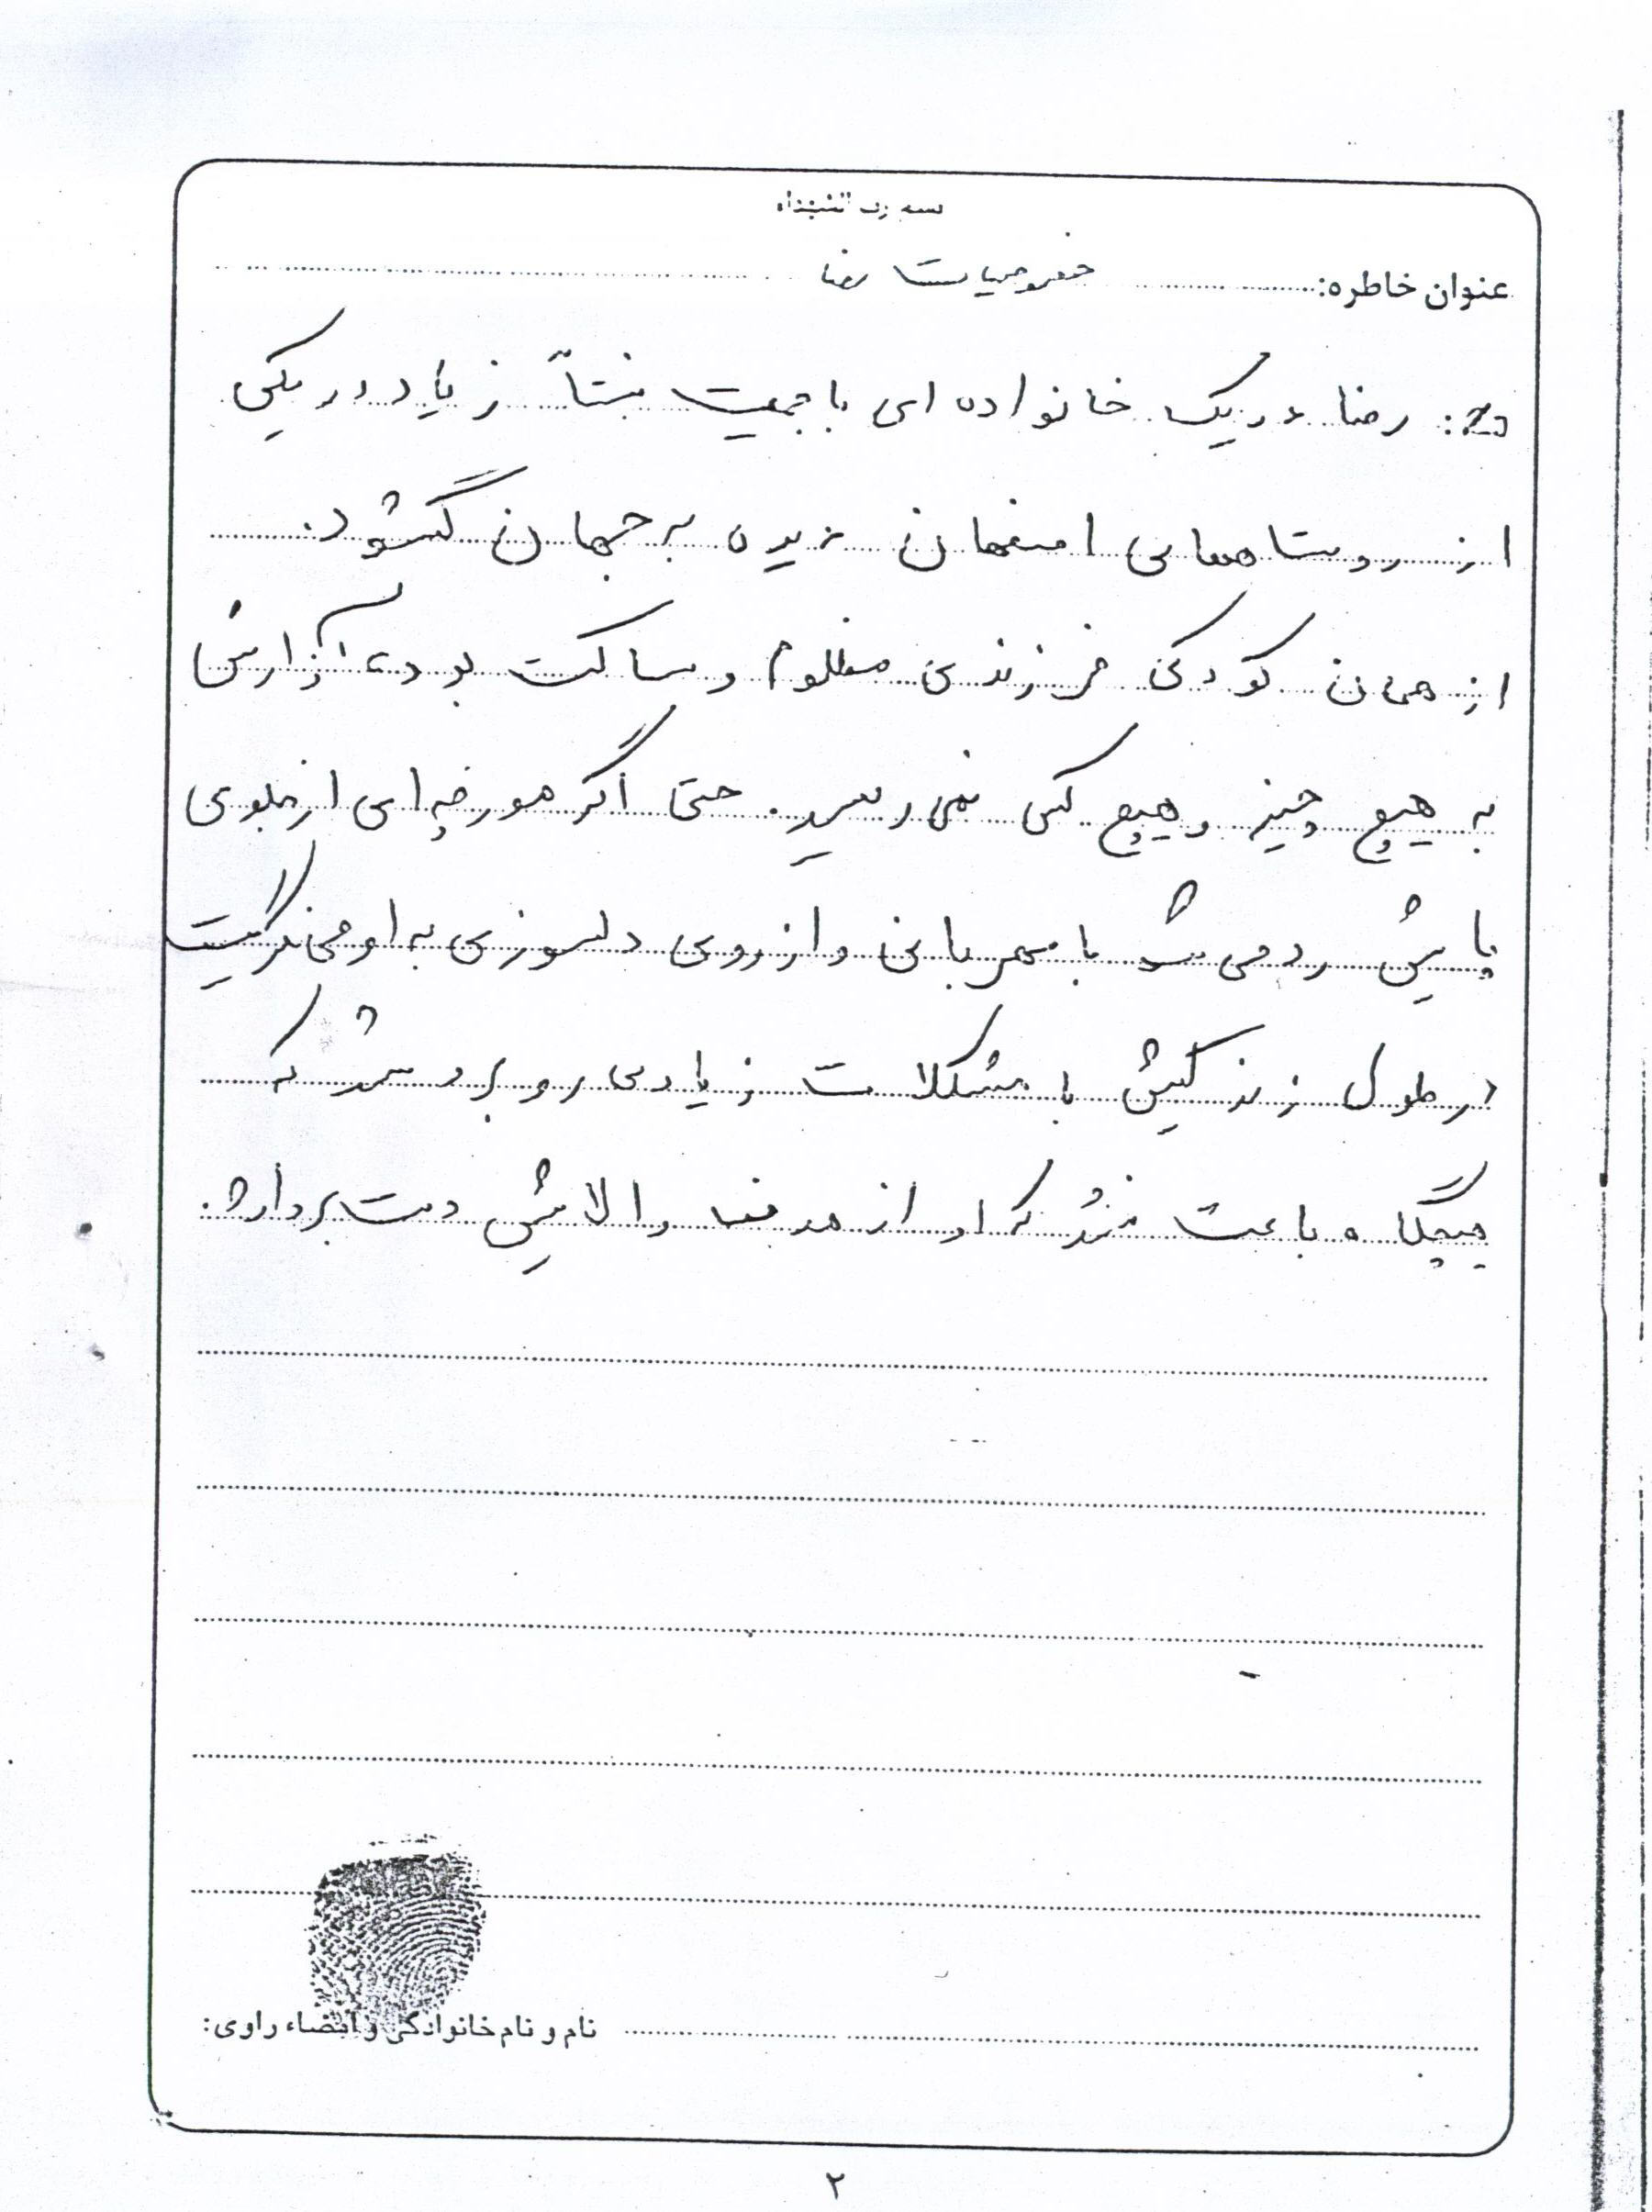 بسم رب الشهداء
عنوان خاطره: خصوصیات رضا
ج: رضا در یک خانواده ای با جمعیت نسبتاً زیاد در یکی
از روستاهای اصفهان دیده به جهان گشود.
از همان کودکی فرزندی مظلوم و ساکت بود که آزارش
به هیچ چیز و هیچ کس نمی رسید. حتی اگر مورچه ای از جلوی
پایش رد می شد با مهربانی و از روی دلسوزی به او می نگریست
در طول زندگیش با مشکلات زیادی روبرو شد که
هیچگاه باعث نشد که او از هدف والایش دست بردارد.
نام و نام خانوادگی و امضاء راوی:
۲